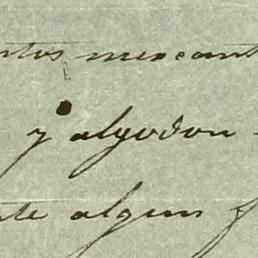 ntos mercant
y algodon
nte algun f